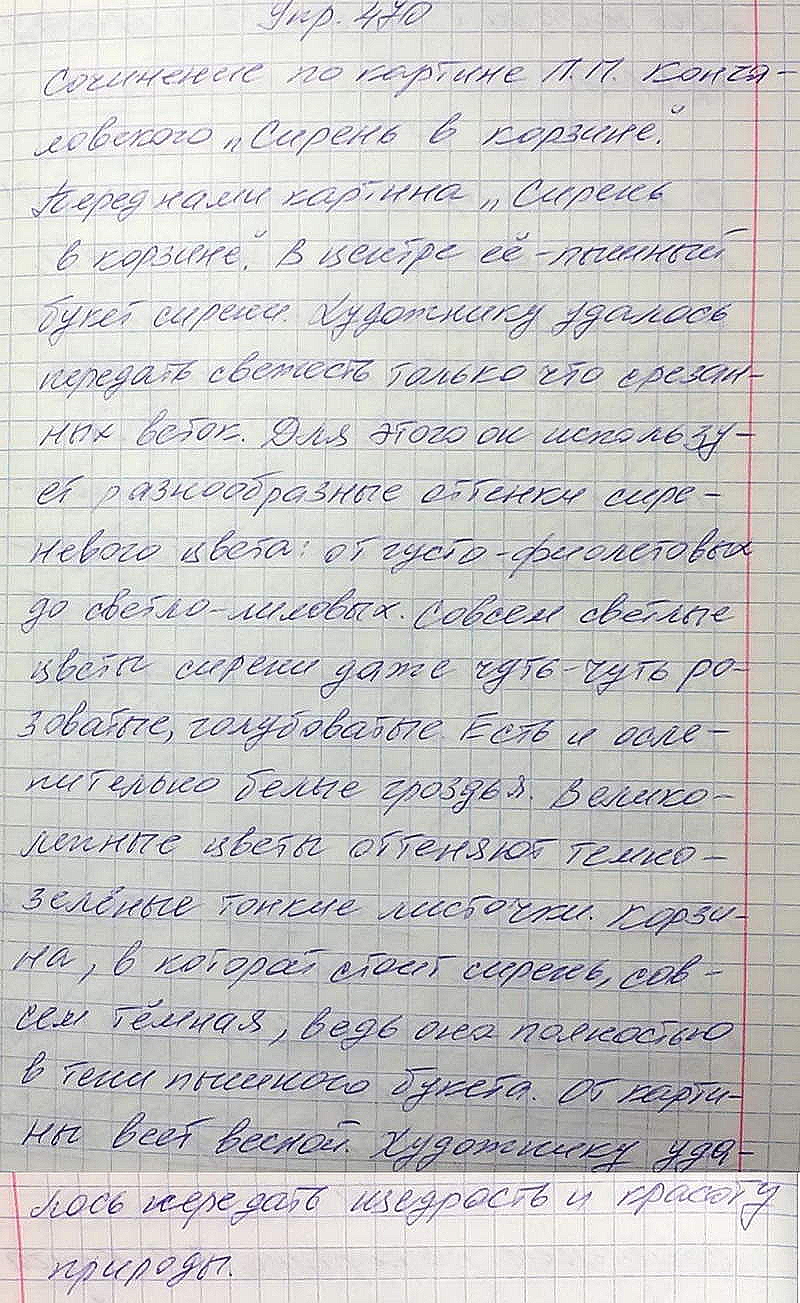 Упр. 470
Сочинение по картине П.П. Конча-
ловского „Сирень в корзине".
Перед нами картина „Сирень
в корзине". В центре её - пышный
букет сирени. Художнику удалось
передать свежесть только что срезан-
ных веток. Для этого он использу-
ет разнообразные оттенки сире-
невого цвета: от густо-фиолетовых
до светло-лиловых. Совсем светлые
цветы сирени даже чуть-чуть ро-
зоватые, голубоватые. Есть и осле-
пительно белые гроздья. Велико-
лепные цветы оттеняют темно-
зелёные тонкие листочки. Корзи-
на, в которой стоит сирень, сов-
сем тёмная, ведь она полностью
в тени пышного букета. От карти-
ны веет весной. Художнику уда-
лось передать щедрость и красоту
природы.